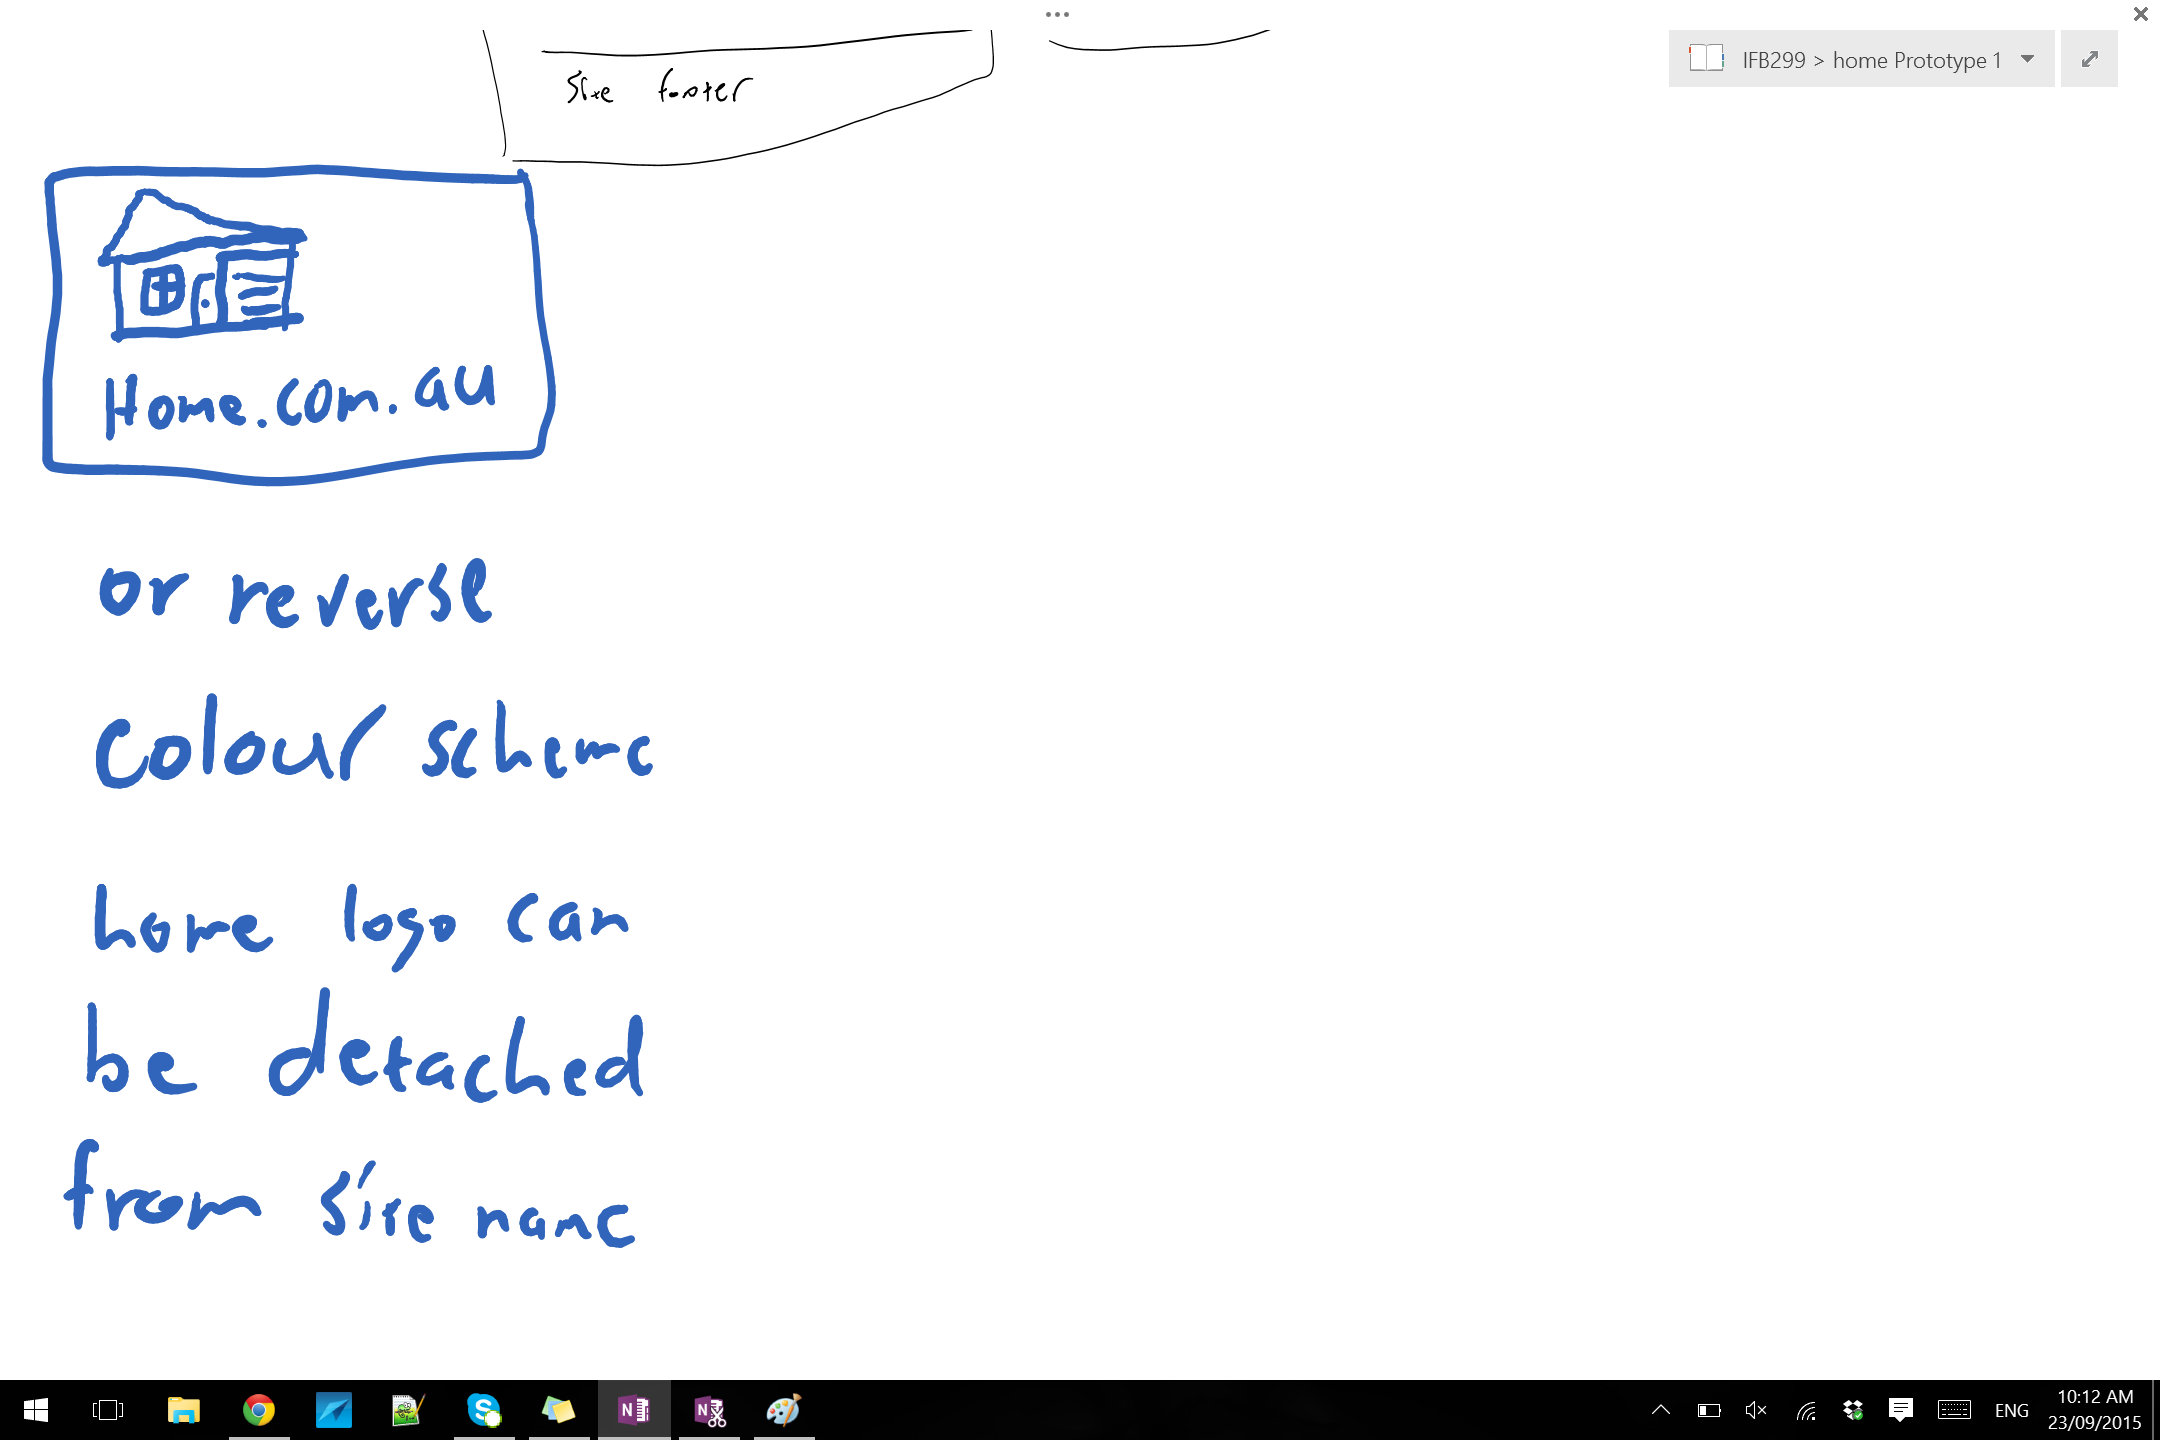 IFB299 > home Prototype 1
Site footer
Home.com.au
or reverse
colour scheme
home logo can
be detached
from site name
ENG
10:12 AM
23/09/2015